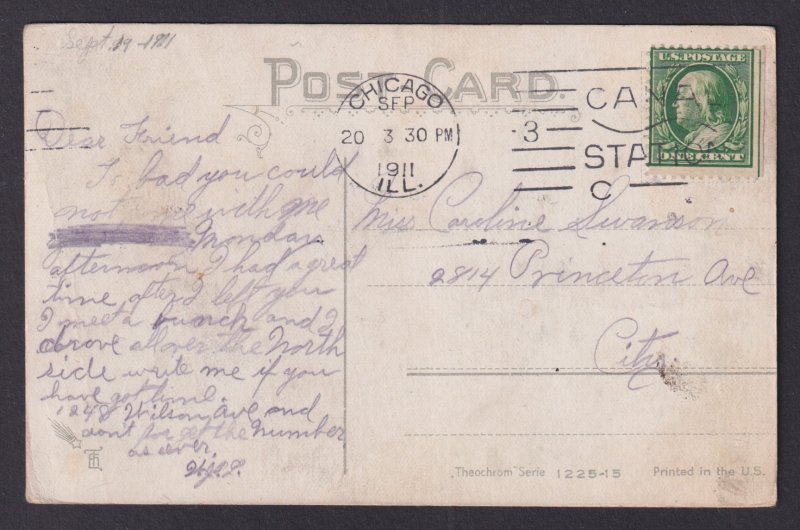 Sept. 19 - 1911
POST CARD.
CHICAGO
SEP
20 3 30 PM
1911
ILL.
3
CANAL
STATION
C
U.S. POSTAGE
ONE CENT
Dear Friend
I bad you could
not with me
Monday
afternoon I had a great
time after I left you
I meet a bunch and I
drove all over the North
side write me if you
have got time.
1248 Wilson Ave and
dont for get the number
as ever
Miss Caroline Swanson
2814 Princeton Ave
City.
„Theochrom" Serie 1225-15
Printed in the U.S.